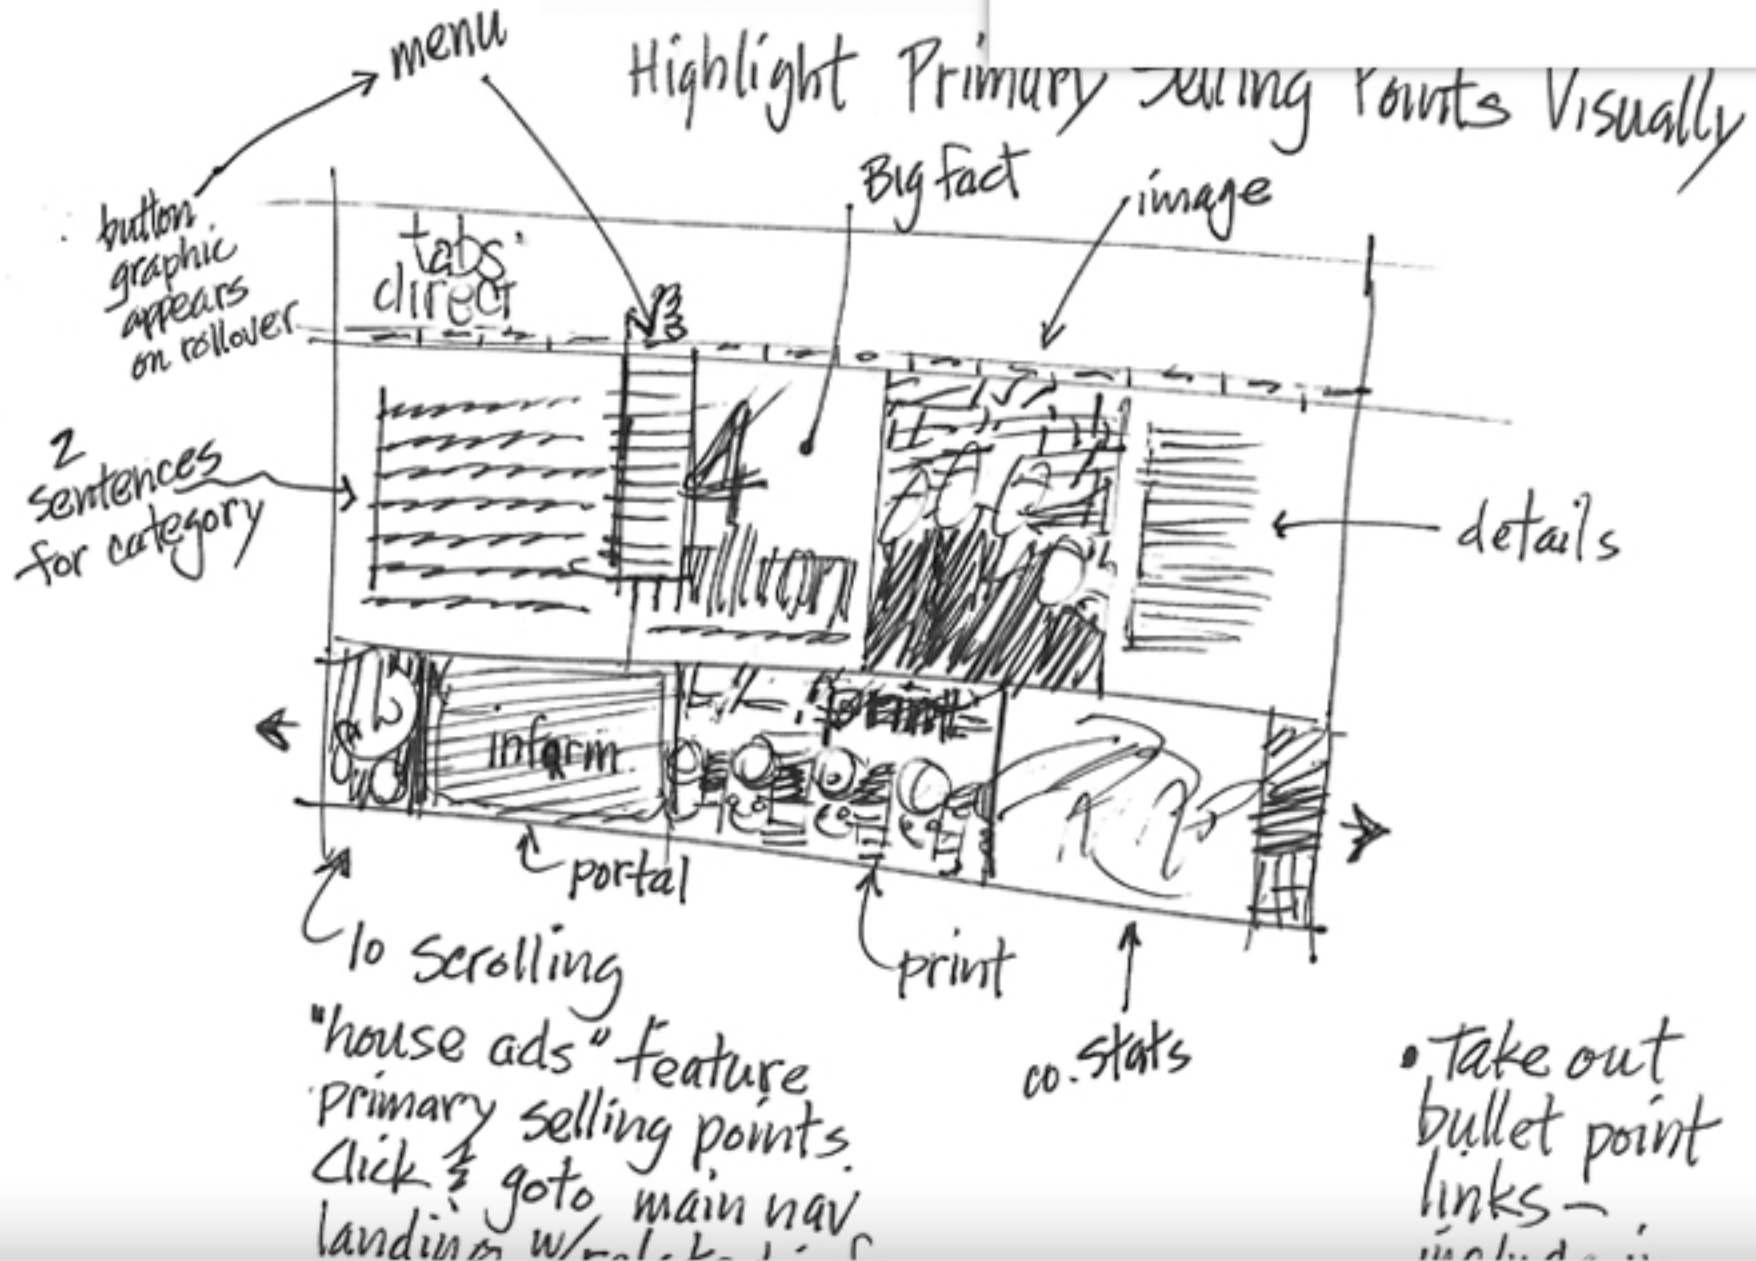 menu
Highlight Primary Selling Points Visually
Big fact
image
button
graphic
appears
on rollover
tabs
direct
2
sentences
for category
4
million
details
inform
print
portal
10 Scrolling
print
"house ads" feature
co. stats
primary selling points.
Click & goto main nav
landing
• Take out
bullet point
links –